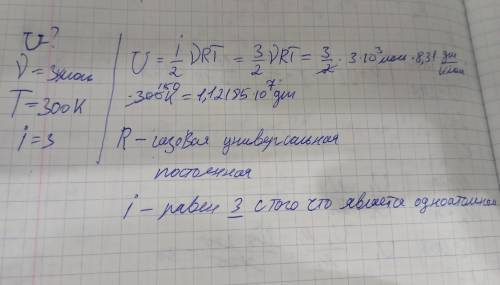 U-?
ν = 3кмоль
T = 300K
i = 3
U = i/2 νRT = 3/2 νRT = 3/2 · 3·10³ моль · 8,31 дж/кмоль
· 300K 150 = 1,12185·10⁷ дж
R – газовая универсальная
постоянная
i – равен 3 с того что является одноатомной